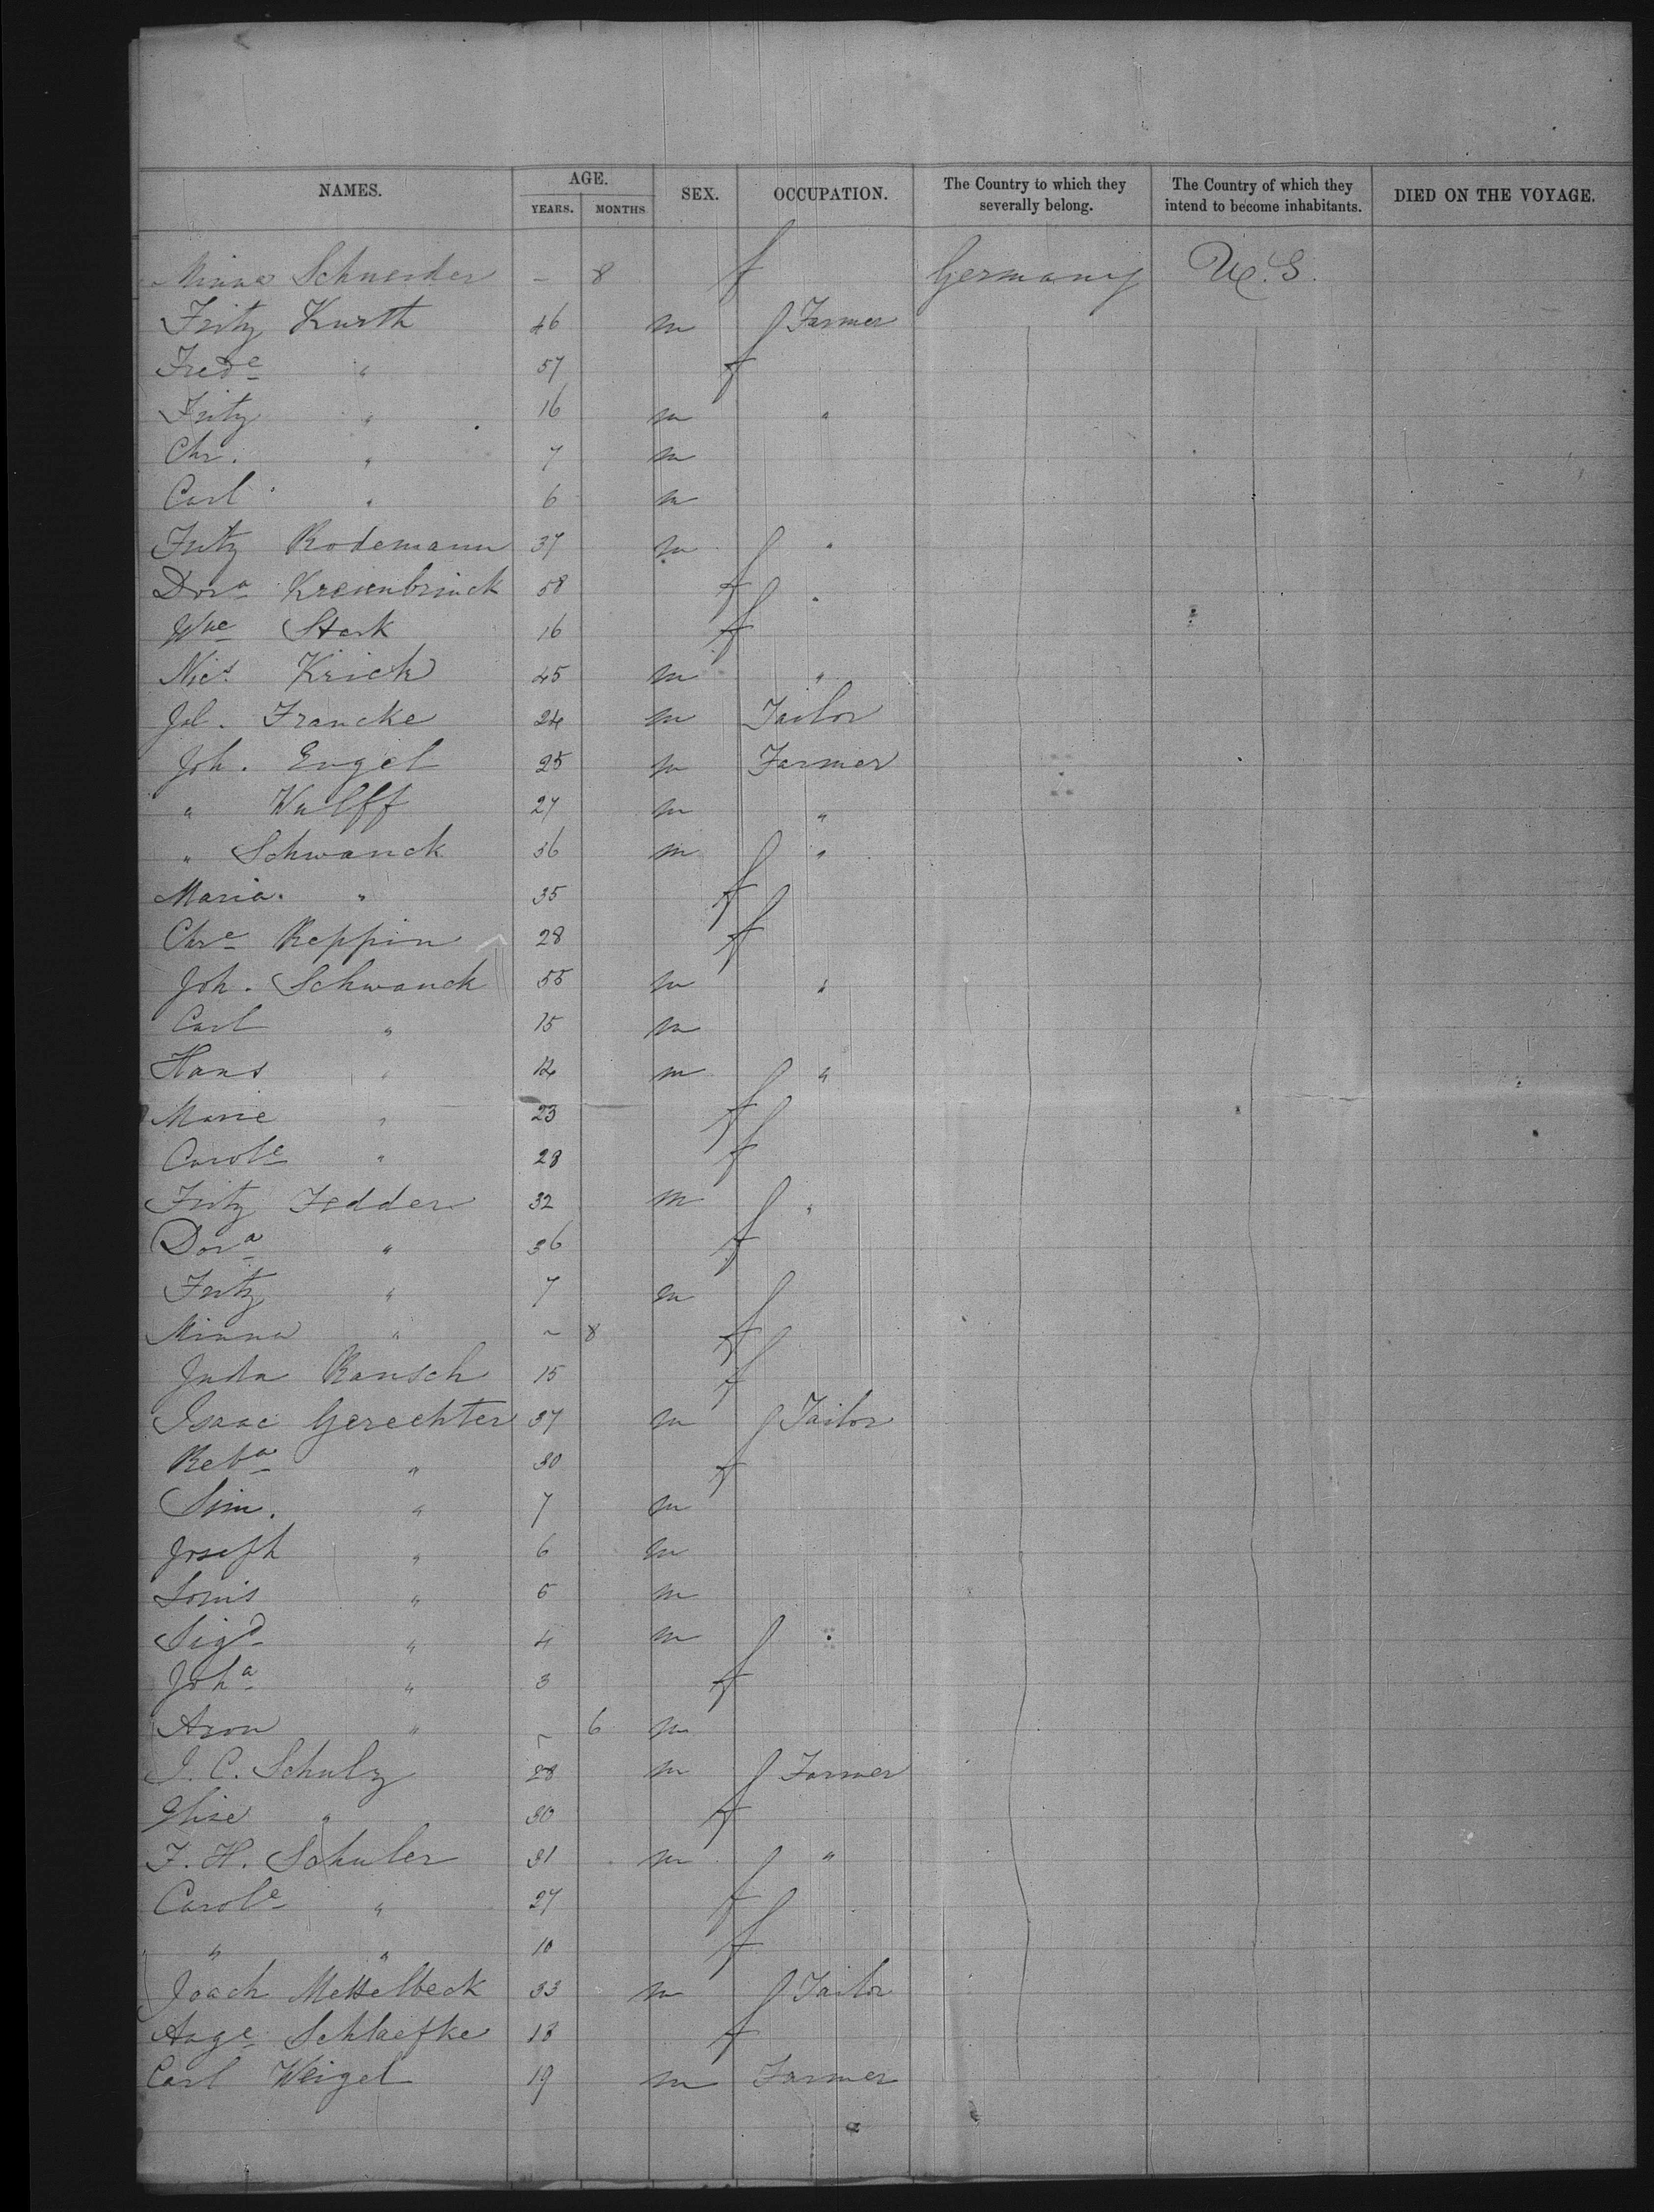 NAMES. AGE. SEX. OCCUPATION. The Country to which they severally belong. The Country of which they intend to become inhabitants. DIED ON THE VOYAGE.
YEARS. MONTHS
Minna Schneider – 8 f Germany U.S.
Fritz Kurth 46 m Farmer
Fredᵉ " 57 f
Fritz " 16 m "
Chr. " 7 m
Carl " 6 m
Fritz Rodemann 37 m "
Dorᵃ Kreienbrinck 58 f "
Wᵐᵉ Stark 16 f
Nicˢ Krick 45 m "
Jol. Francke 24 m Tailor
Joh. Engel 25 m Farmer
" Wulff 27 m "
" Schwanck 36 m "
Maria. " 35 f
Chrᵉ Reppin 28 f
Joh. Schwanck 55 m "
Carl " 15 m
Hans " 12 m "
Marie " 23 f
Carolᵉ " 28 f
Fritz Fedder 32 m "
Dorᵃ " 36 f
Fritz " 7 m
Minna " ~ 8 f
Juda Rausch 15 f
Isaac Gerechter 37 m Tailor
Rebᵃ " 30 f
Sim. " 7 m
Joseph " 6 m
Louis " 5 m
Sigᵈ " 4 m
Johᵃ " 3 f
Aron " ~ 6 m
J. C. Schulz 28 m Farmer
Elise " 30 f
F. H. Schuler 31 m "
Carolᵉ " 27 f
" " 10 f
Joach Mettelbeck 33 m Tailor
Augᵉ Schlaefke 13 f
Carl Weigel 19 m Farmer